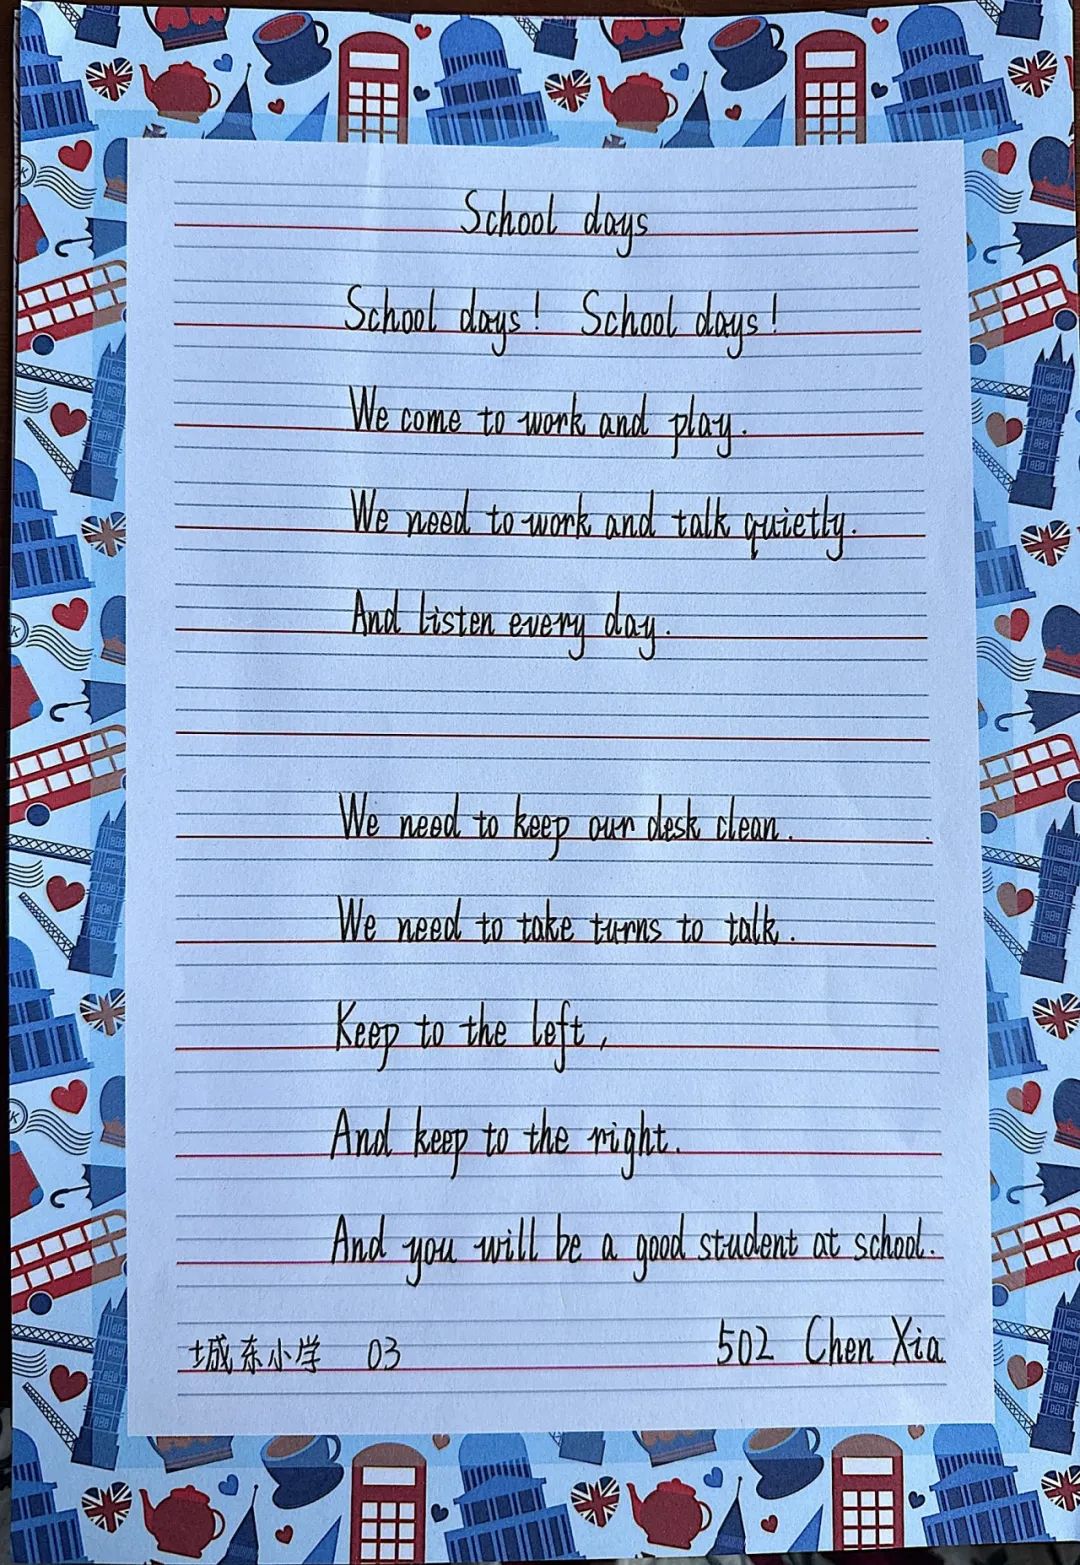 School days
School days! School days!
We come to work and play.
We need to work and talk quietly.
And listen every day.
We need to keep our desk clean.
We need to take turns to talk.
Keep to the left,
And keep to the right.
And you will be a good student at school.
城东小学 03 502 Chen Xia